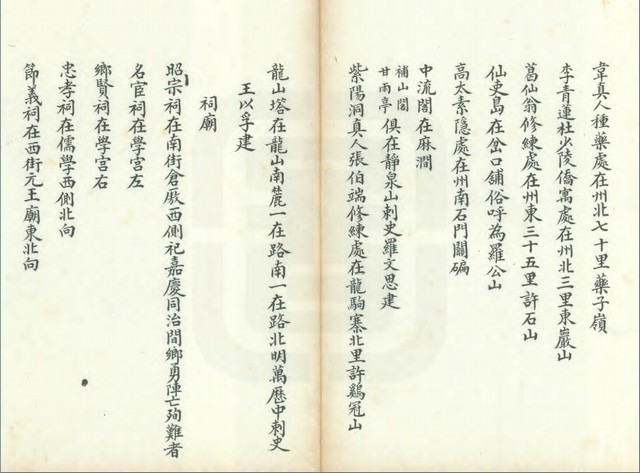 韋真人種藥處在州北七十里藥子嶺
李青蓮杜少陵僑寓處在州北三里東巖山
葛仙翁修練處在州東三十五里許石山
仙吏島在岔口舖俗呼為羅公山
高太素隱處在州南石門關碥
中流閣在麻澗
補山閣
甘雨亭
俱在靜泉山刺史羅文思建
紫陽洞真人張伯端修練處在龍駒寨北里許鷄冠山
龍山塔在龍山南麓一在路南一在路北明萬歷中刺史
王以孚建
祠廟
昭宗祠在南街倉厫西側祀嘉慶同治間鄉勇陣亡殉難者
名宦祠在學宮左
鄉賢祠在學宮右
忠孝祠在儒學西側北向
節義祠在西街元王廟東北向